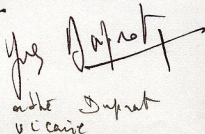 Yves Duprat
abbé Duprat
vicaire